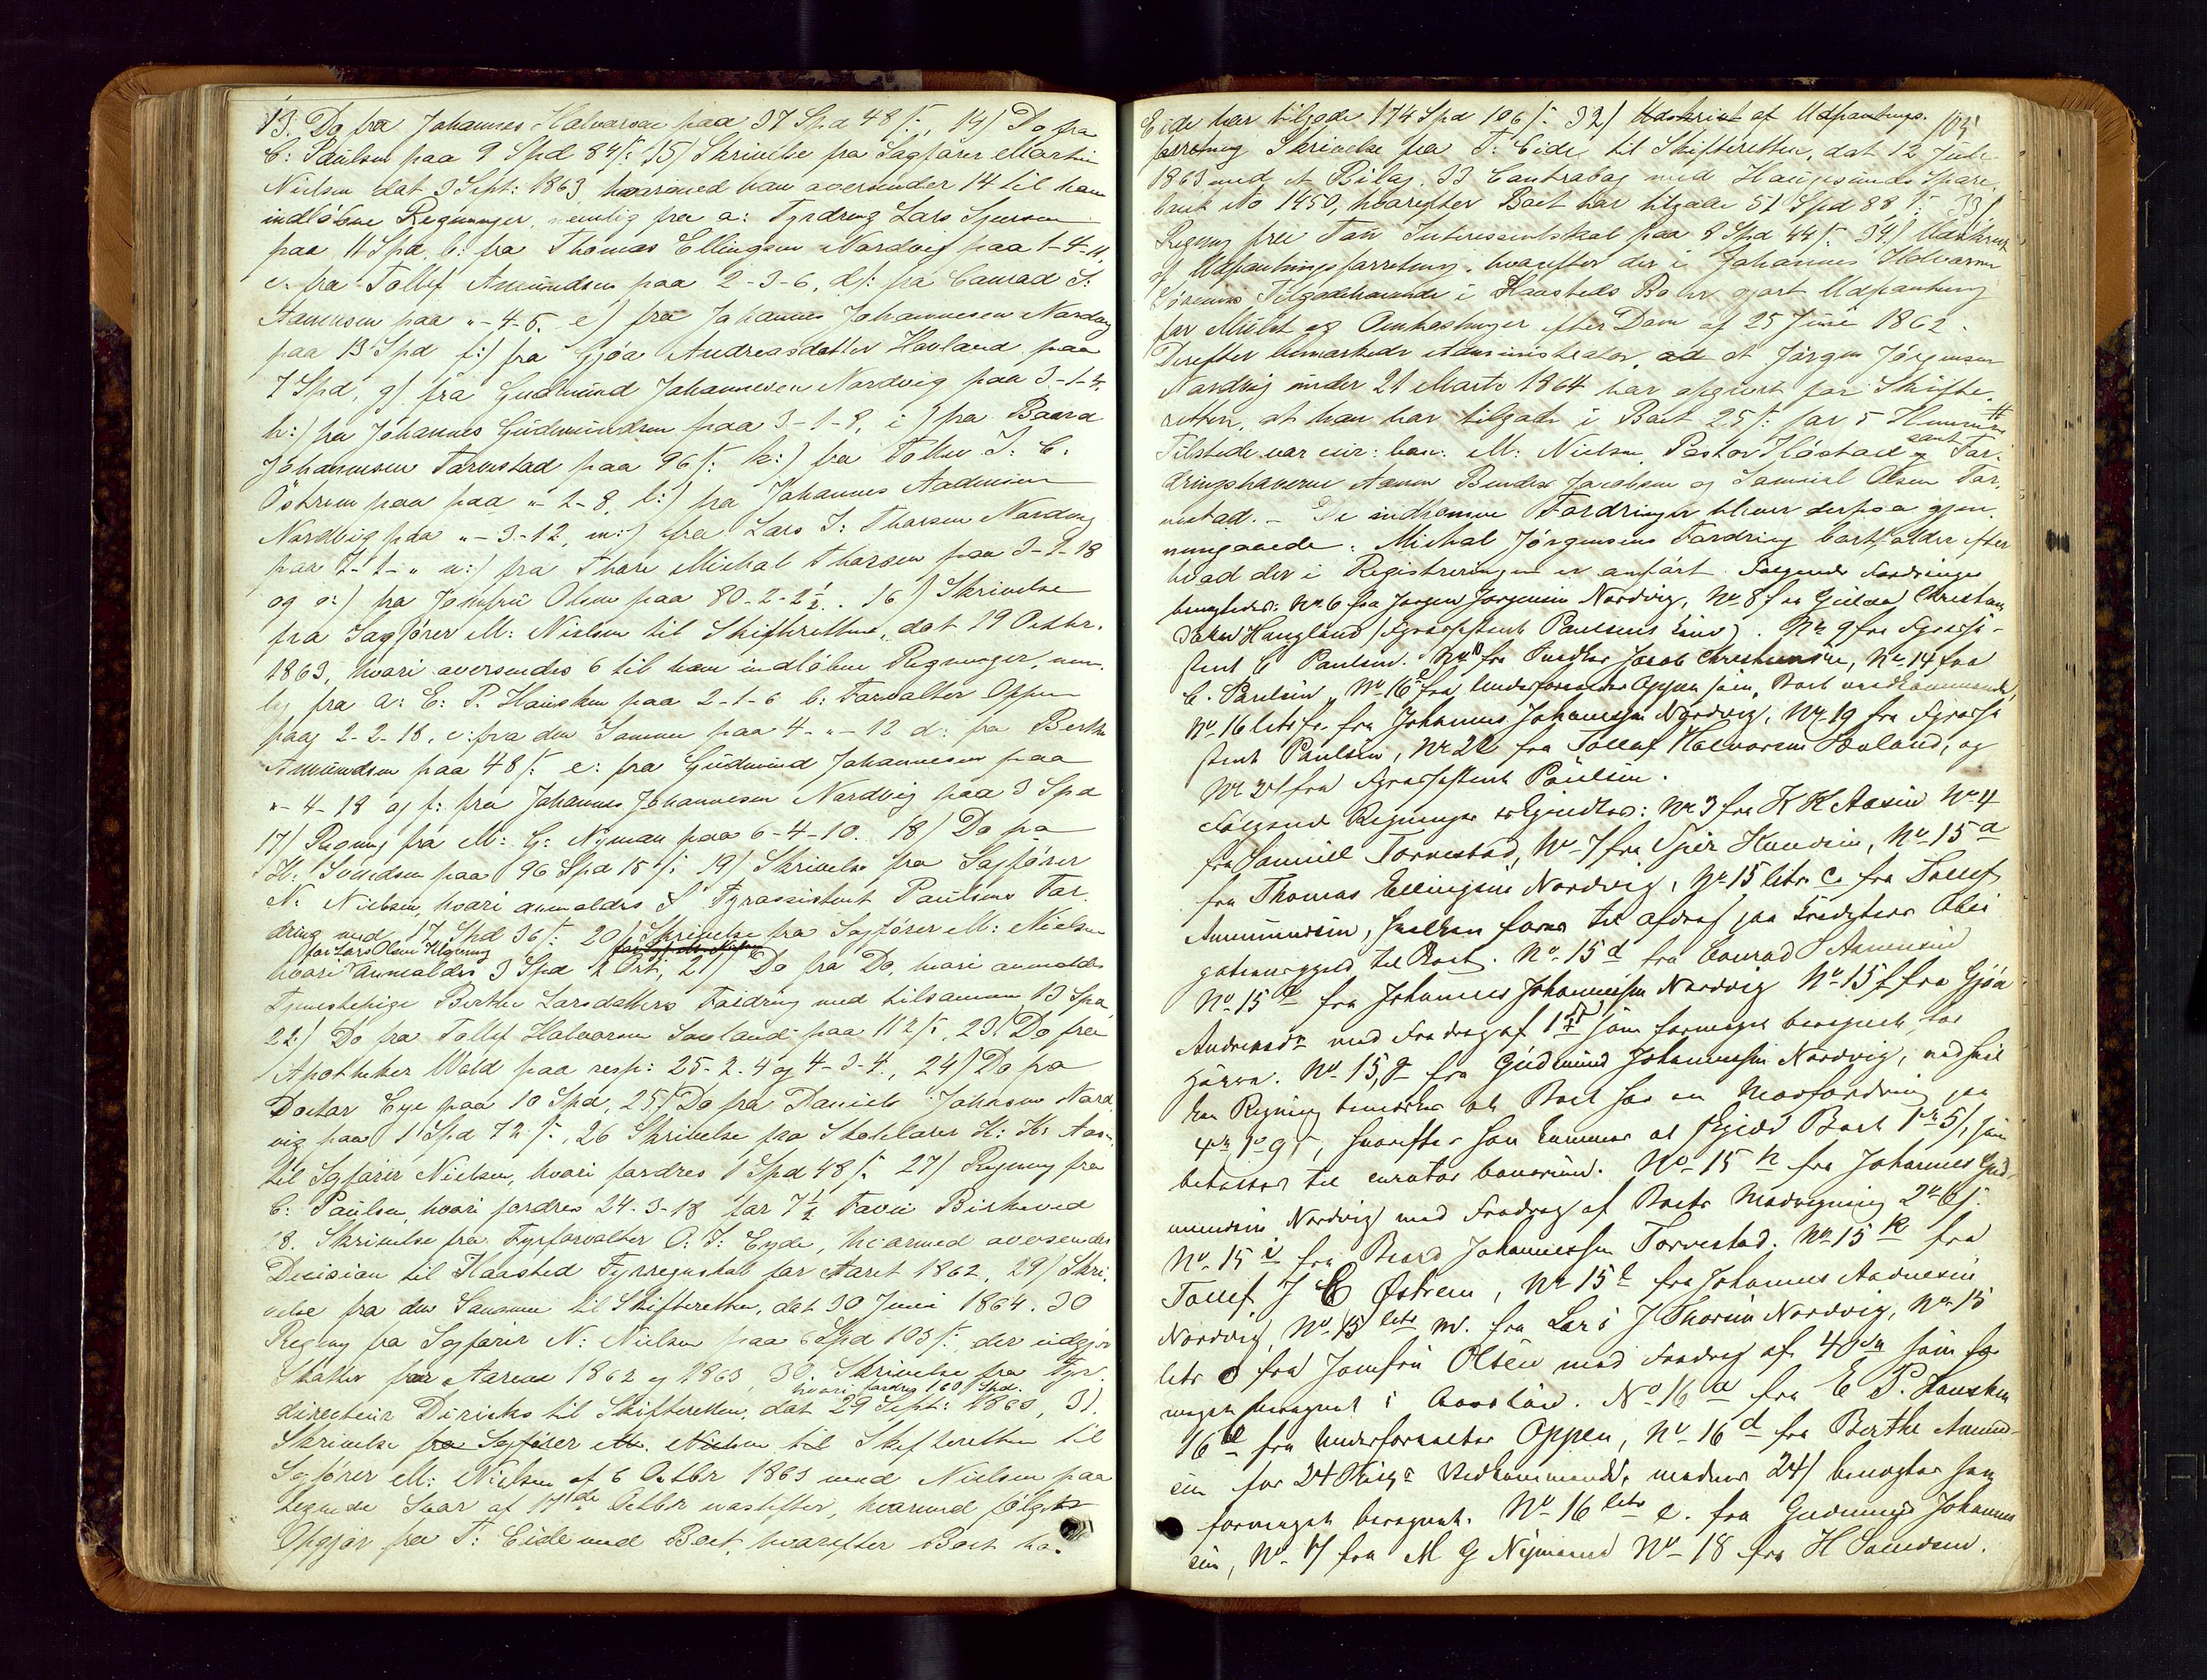 13. Do fra Johannes Halvorsen paa 37 Spd 48 ß., 14) Do fra
C: Paulsen paa 9 Spd 84 ß: 15) Skrivelse fra Sagfører Martin
Nielsen dat 3 Sept: 1863, hvormed han oversender 14 til ham
indløbne Regninger, nemlig fra a: Lars Sjursen
paa 11 Spd, b: fra Thomas Ellingsen Nordvig paa 1-4-11,
c. fra Tollef Amundsen paa 2-3-6, d): fra Conrad S:
Aanensen paa "-4-6. e) fra Johannes Johannesen Nordvig
paa 13 Spd f:) fra Gjøa Andreasdatter Havland paa
7 Spd, g) fra Gudmund Johannesen Nordvig paa 3-1-4.
h:) fra Johannes Gudmundsen paa 3-1-8, i) fra Baard
Johannesen Torvestad paa 96 ß: k:) fra Tollev J: C.
Östrem paa paa "-2-8, l:) fra Johannes Aadnesen
Nordvig paa "-3-12, m:) fra Lars J: Thorsen Nordvig
paa 7-1-" n:) fra Thore Michal Thorsen paa 3-2-18
og o:) fra Jomfru Olsen paa 80-2-2½. 16) Skrivelse
fra Sagfører M: Nielsen til Skifteretten, dat 19 Octbr.
1863, hvori oversendes 6 til ham indløbne Regninger, nem-
lig fra a: E. P. Hausken paa 2-1-6 b: Forvalter Oppen
paa 2-2-18, c: fra den Samme paa 4-"-12 d: fra Berthe
Amundsen paa 48 ß: e: fra Gudmund Johannesen paa
"-4-18 og f: fra Johannes Johannesen Nordvig paa 3 Spd
17) Regning fra M: G: Nyman paa 6-4-10. 18) Do fra
H: Svendsen paa 96 Spd 15 ß: 19) Skrivelse fra Sagfører
N. Nielsen, hvori anmeldes Fyrassistent Paulsens For-
dring med 17 Spd 36 ß: 20) Skrivelse fra Sagfører M: Nielsen
for Lars Olsen
hvori anmeldes 3 Spd 2 Ort, 21) Do fra Do, hvori anmeldes
Tjenestepige Berthe Larsdatters Fordring med tilsammen 13 Spd,
22) Do fra Tollef Halvorsen Havland paa 112 ß, 23) Do fra
Apotheker Wold paa resp: 25-2-4 og 4-3-4, 24) Do fra
Doctor Eye paa 10 Spd, 25) Do fra Daniels Johnsen Nord-
vig paa 1 Spd 72 ß:, 26 Skrivelse fra Skolelærer K: K: Aasen
til Sagfører Nielsen, hvori fordres 1 Spd 48 ß: 27) Regning fra
C: Paulsen, hvori fordres 24-3-18 for 7½ Favn Birkeved
28. Skrivelse fra Fyrforvalter O. T: Eyde, hvormed oversendes
Decision til Haasted Fyrregnskab for Aaret 1862, 29) Skri-
velse fra den Samme til Skifteretten, dat 30 Juni 1864. 30
Regning fra Sagfører N: Nielsen paa 6 Spd 103 ß:, der udgjør
Skatter for Aarene 1862 og 1863, 30. Skrivelse fra Fyr-
hvori fordres 160 Spd.
directeur Diricks til Skifteretten, dat 29 Sept: 1863, 31.
Skrivelse fra Sagfører M. Nielsen til Skifteretten til
Sagfører M: Nielsen af 6 Octbr 1863 med Nielsen paa
tegnede Svar af 17de Octbr næstefter, hvormed følgte
Opgjør fra T: Eide med Boet, hvorefter Boet ha-
103
Eide har tilgode 174 Spd 106 ß: 32) Udskrivt af Udpantnings-
forretning Skrivelse fra T: Eide til Skifteretten, dat 12 Juli
1863 med et Bilag. 33 Contrabog med Haugesunds Spare-
bank No 1450, hvorefter Boet har tilgode 51 Spd 88 ß: 33)
Regning fra Interessentskab paa 8 Spd 44 ß: 34.) Udskrivt
af Udpantningsforretning, hvorefter der i Johannes Halvorsen
Tilgodehavende i Haasteds Bo er gjort Udpantning
for Mulct og Omkostninger efter Dom af 25 Juni 1862.
Derefter bemærkede Administrator, ad at Jørgen Jørgensen
Nordvig under 21 Marts 1864 har opgivet for Skifte-
retten, at han har tilgode i Boet 25 ß: for 5 Hummere #
Tilstede var cur: bon: M: Nielsen, Pastor samt For-
dringshaverne Aamon Bendix Jacobsen og Samuel Olsen Tor-
vestad. – De indkomne Fordringer bleve derpaa gjen-
nemgaaede: Michal Jørgensens Fordring bortfalder efter
hvad der i Registreringen er anført. Følgende Fordringer
benegtedes: No 6 fra Jørgen Jørgensen Nordvig, No 8 fra Christens
datter Haugland (Fyrassistent Paulsens Enke). No 9 fra Fyrassi-
stent C Paulsen. fra Jacob Christensen, No 14 fra
C. Paulsen, No 16 b fra Underforvalter Oppen som Boet uvedkommende,
No 16 litr f. fra Johannes Johannessen Nordvig, No 19 fra Fyrassi
stent Paulsen, No 22 fra Tollef Halvorsen Havland, og
No 27 fra Fyrassistent Paulsen.
Følgende Regninger erkjendtes: No 3 fra K K Aasen No 4
fra Samuel Torvestad, No 7 fra Knudsen, No 15 a
fra Thomas Ellingsen Nordvig, No 15 litr. c. fra Tollef
Ammundsen, hvilken fører til afdrag paa
til Boet. No 15 d fra Conrad S Aanensen
No 15 e fra Johannes Johannessen Nordvig No 15 f fra Gjøa
Andreasdr med Fradrag af som formeget beregnet for
No 15, g fra Gudmund Johannessen Nordvig, ved hvil
ken Regning bemærkes at Boet har en Modfordring paa
hvorefter han kommer at skylde Boet som
betales til curator bonorum. No 15 h fra Johannes Gud-
mundsen Nordvig med Fradrag af Boets Modregning
No 15 i fra Baard Johannessen Torvestad. No 15 k fra
Tollef J C Østrem, No 15 l fra Johannes Aadnesen
Nordvig, No 15 litr m. fra Lars J Thorsen Nordvig, No 15
litr o fra Jomfru Olsen med Fradrag af som for
meget beregnet i No 16 a fra E P. Hausken
16 fra Underforvalter Oppen, No 16 d fra Berthe Amund-
sen for 24 Vedkommende, medens 24 ß benegtes som
formeget beregnet. No 16 litr e. fra Gudmund Johannes
sen, No 17 fra M G Nymann No 18 fra H Svendsen.